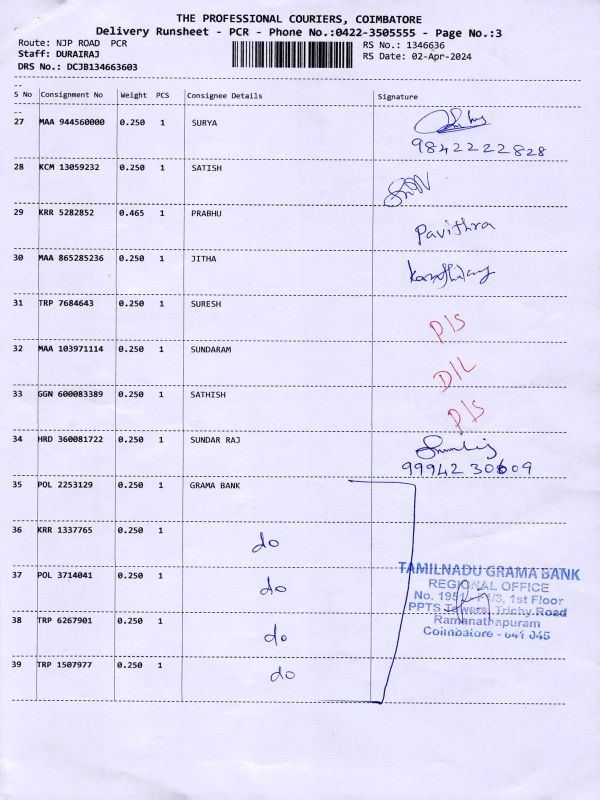 THE PROFESSIONAL COURIERS, COIMBATORE
Delivery Runsheet - PCR - Phone No.:0422-3505555 - Page No.:3
Route: NJP ROAD PCR RS No.: 1346636
Staff: DURAIRAJ RS Date: 02-Apr-2024
DRS No.: DCJB134663603
S No Consignment No Weight PCS Consignee Details Signature
27 MAA 944560000 0.250 1 SURYA
9842222828
28 KCM 13059232 0.250 1 SATISH
29 KRR 5282852 0.465 1 PRABHU
Pavithra
30 MAA 865285236 0.250 1 JITHA
31 TRP 7684643 0.250 1 SURESH
P/S
32 MAA 103971114 0.250 1 SUNDARAM
D/L
33 GGN 600083389 0.250 1 SATHISH
P/S
34 HRD 360081722 0.250 1 SUNDAR RAJ
99942 30609
35 POL 2253129 0.250 1 GRAMA BANK
36 KRR 1337765 0.250 1
do
37 POL 3714041 0.250 1
do
38 TRP 6267901 0.250 1
do
39 TRP 1507977 0.250 1
do
TAMILNADU GRAMA BANK
REGIONAL OFFICE
No. 1951, 1st Floor
PPTS Towers, Trichy Road
Ramanathapuram
Coimbatore - 641 045